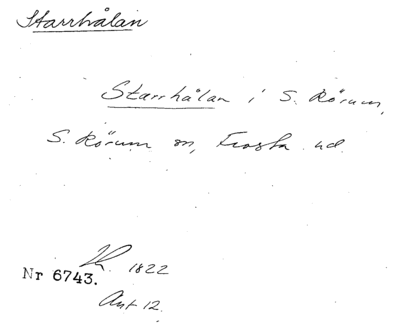 Starrhålan
Starrhålan i S. Rörum,
S. Rörum sn, Frosta hd.
1822
Nr 6743.
Akt 12.